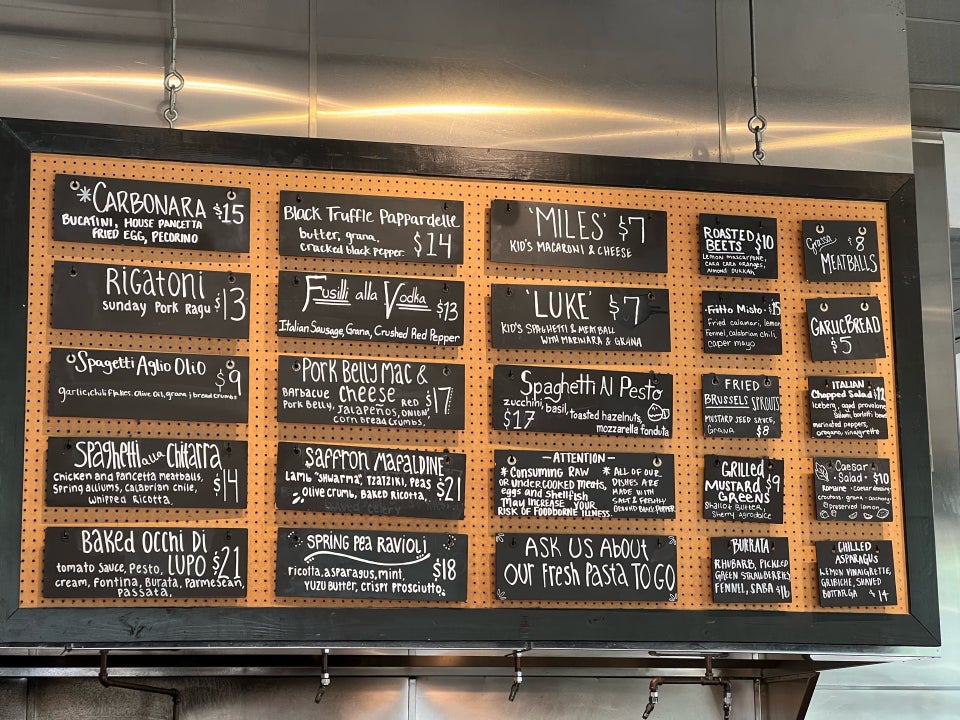 *CARBONARA $15
BUCATINI, HOUSE PANCETTA
FRIED EGG, PECORINO
RIGATONI $13
Sunday Pork Ragu
Spagetti Aglio Olio $9
garlic, chili flakes, Olive Oil, grana, bread crumbs
Spaghetti alla Chitarra $14
chicken and Pancetta meatballs,
Spring alliums, calabrian chile,
whipped Ricotta
Baked Occhi Di LUPO $21
tomato sauce, Pesto,
cream, Fontina, Burata, Parmesean,
Passata,
Black Truffle Pappardelle
butter, grana,
cracked black pepper. $14
Fusilli alla Vodka $13
Italian Sausage, Grana, Crushed Red Pepper
Pork Belly Mac & Cheese $17
Barbacue
Pork Belly, Jalapeños, Red Onion,
Corn Bread Crumbs,
Saffron Mafaldine $21
Lamb "Shwarma", Tzatziki, Peas
olive crumb, Baked Ricotta,
SPRING PEA RAVIOLI $18
ricotta, asparagus, mint,
YUZU Butter, crispy Prosciutto,
'MILES' $7
KID'S MACARONI & CHEESE
'LUKE' $7
KID'S SPAGHETTI & MEATBALL
WITH MARINARA & GRANA
Spaghetti N Pesto $17
zucchini, basil, toasted hazelnuts,
mozzarella fonduta
– ATTENTION –
* Consuming RAW
or UNDERCOOKED Meats,
eggs and Shellfish
May Increase YOUR
RISK OF FOODBORNE ILLNESS.
* ALL OF OUR
DISHES ARE
MADE WITH
SALT & FRESHLY
GROUND BLACK PEPPER
ASK US About
OUR Fresh Pasta TO GO
ROASTED
BEETS $10
Lemon mascarpone,
cara cara oranges,
Almond Dukkah
Fritto Misto $15
Fried calamari, lemon
Fennel, calabrian chili,
caper mayo
FRIED
BRUSSELS SPROUTS
MUSTARD SEED SAUCE,
Grana $8
GRILLED
MUSTARD
GREENS $9
Shallot Butter,
Sherry Agrodolce
BURRATA
RHUBARB, PICKLED
GREEN STRAWBERRIES
FENNEL, SABA $16
$8
MEATBALLS
GARLIC BREAD
$5
ITALIAN
Chopped Salad $12
Iceberg, aged provolone
Salami, borlotti beans
marinated peppers,
oregano, vinaigrette
Caesar
Salad $10
romaine
croutons · grana · anchovy
preserved lemon
CHILLED
ASPARAGUS
LEMON VINAIGRETTE,
GRIBICHE, SHAVED
BOTTARGA $14